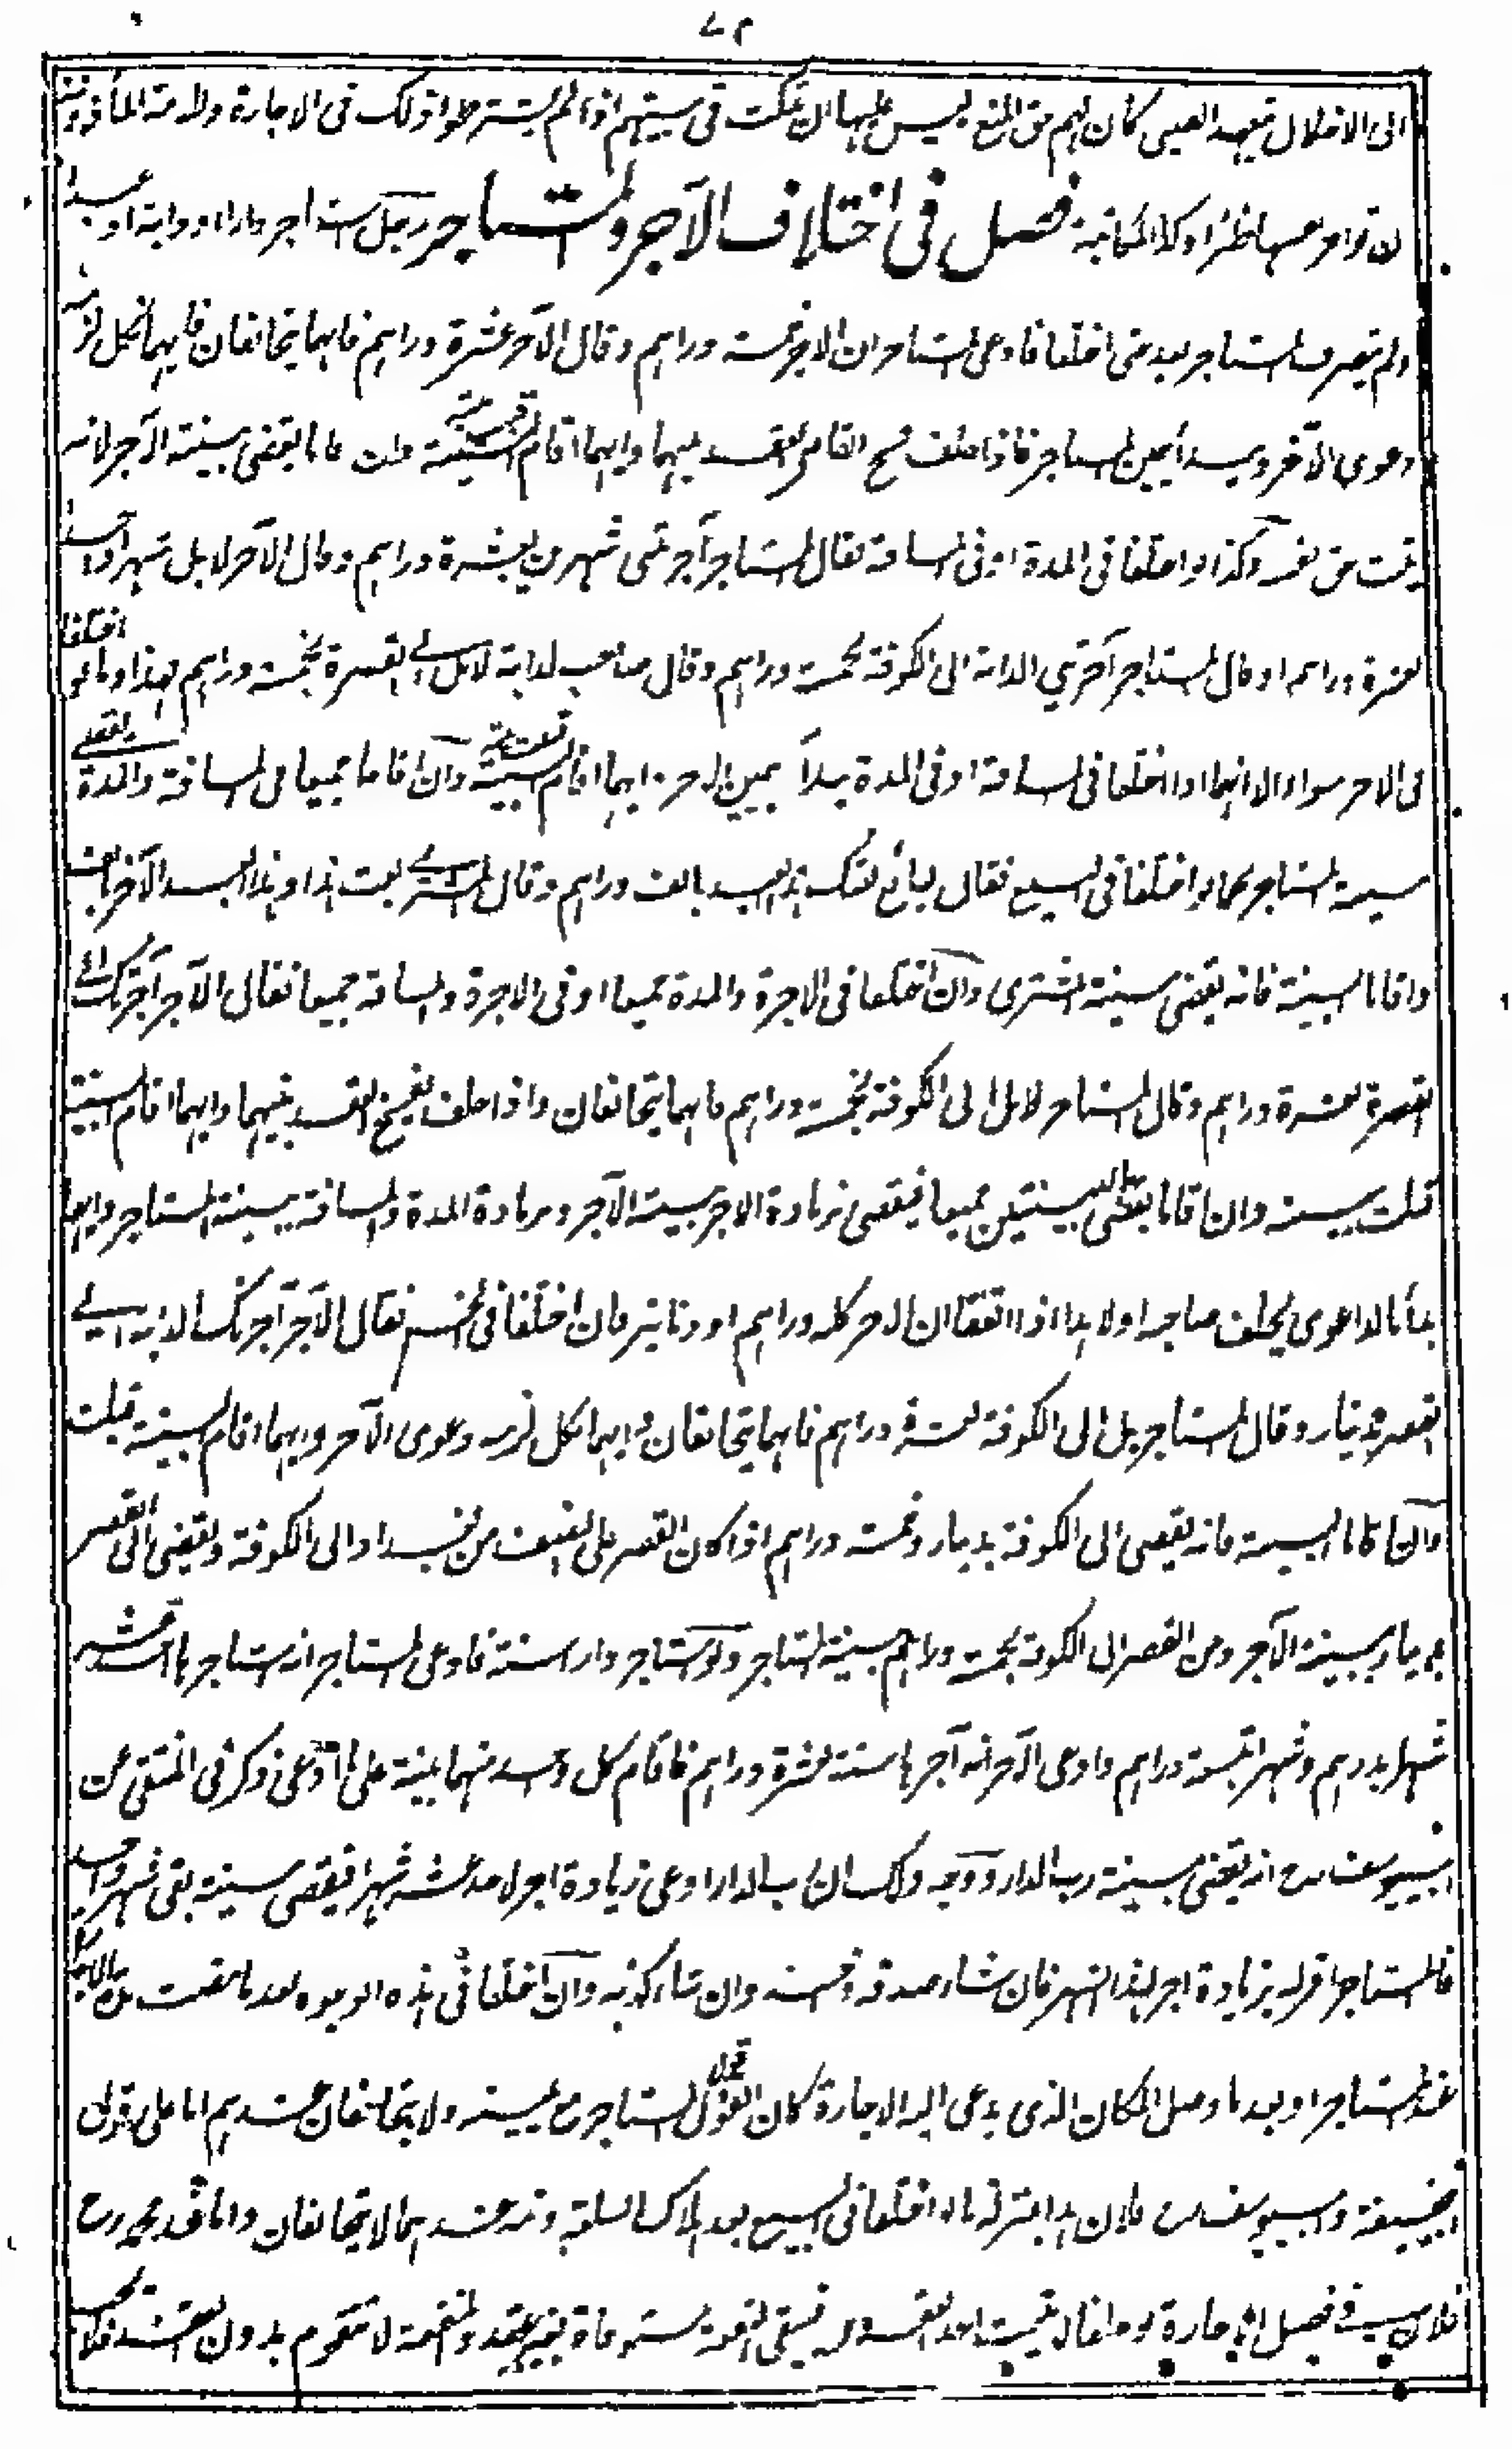 الى الاخلال بتعهد الصبى كان لهم حق المنع ليس عليها ان تمكث فى بيتهم اذا لم يشترطوا ذلك فى الاجارة والامة المأذونة
ان تواجر نفسها ظئرا وكذا المكاتبة فصل فى اختلاف الآجر والمستاجر رجل استاجر دارا او دابة او عبدا
ولم يتصرف المستاجر بعد حتى اختلفا فادعى المستاجر ان الاجر خمسة دراهم وقال الآجر عشرة دراهم فانهما يتحالفان فايهما نكل لزمه
دعوى الآخر ويبدأ بيمين المستاجر فاذا حلف فسخ القاضى العقد بينهما وايهما اقام البينة قبلت بينته وان اقاما يقضى ببينة الآجر لانه
يثبت حق نفسه وكذا لو اختلفا فى المدة او فى المسافة فقال المستاجر آجرتنى شهرين بعشرة دراهم وقال الآجر لا بل شهرا واحدا
بعشرة دراهم او قال المستاجر آجرتني الدابة الى الكوفة بخمسة دراهم وقال صاحب الدابة لا بل الى القصر بخمسة دراهم فهذا وما لو اختلفا
فى الاجر سواء الا انهما اذا اختلفا فى المسافة او فى المدة يبدأ بيمين الآجر وايهما اقام البينة قبلت بينته وان اقاما جميعا فى المسافة والمدة يقضى
ببينة المستاجر كما لو اختلفا فى البيع فقال البائع بعتك هذا العبد بالف دراهم وقال المشترى بعت هذا وهذا العبد الآخر بالف
واقاما البينة فانه يقضى ببينة المشترى وان اختلفا فى الاجرة والمدة جميعا او فى الاجرة والمسافة جميعا فقال الآجر آجرتك الى
القصر بعشرة دراهم وقال المستاجر لا بل الى الكوفة بخمسة دراهم فانهما يتحالفان واذا حلف يفسخ العقد بينهما وايهما اقام البينة
قبلت بينته وان اقاما يقضى بالبينتين جميعا فيقضى بزيادة الاجر ببينة الآجر وبزيادة المدة والمسافة ببينة المستاجر وايهما
بدأ بالدعوى يحلف صاحبه اولا هذا اذا اتفقا ان الاجر كله دراهم او دنانير فان اختلفا فى الجنس فقال الآجر آجرتك الدابة الى
القصر بدينار وقال المستاجر بل الى الكوفة بعشرة دراهم فانهما يتحالفان وايهما نكل لزمه دعوى الآخر وايهما اقام البينة قبلت
وان اقاما البينة فانه يقضى الى الكوفة بدينار وخمسة دراهم اذا كان القصر على النصف من بغداد الى الكوفة ويقضى الى القصر
بدينار ببينة الآجر ومن القصر الى الكوفة بخمسة دراهم ببينة المستاجر ولو استاجر دارا سنة فادعى المستاجر انه استاجرها احد عشر
شهرا بدرهم وشهرا بتسعة دراهم وادعى الآجر انه آجرها سنة بعشرة دراهم فاقام كل واحد منهما بينة على ما ادعى ذكر فى المنتقى عن
ابى يوسف رح انه يقضى ببينة رب الدار ووجه ذلك ان رب الدار ادعى زيادة اجر لاحد عشر شهرا فيقضى ببينته بقى شهر واحد
فالمستاجر اقر له بزيادة اجر لهذا الشهر فان شاء صدقه وان شاء كذبه وان اختلفا فى هذه الوجوه بعد ما مضت مدة الاجارة
عند المستاجر او بعد ما وصل المكان الذى يدعى اليه الاجارة كان القول قول المستاجر مع يمينه ولا يتحالفان عندهم اما على قول
ابيحنيفة وابى يوسف رح فلان هذا بمنزلة ما لو اختلفا فى البيع بعد هلاك السلعة وثمه عندهما لا يتحالفان واما عند محمد رح
فلان فى فصل الاجارة لو حلفا لا يجب العقد فتبقى المنفعة مستوفاة بغير عقد والمنفعة لا تتقوم بدون العقد فلا يجب